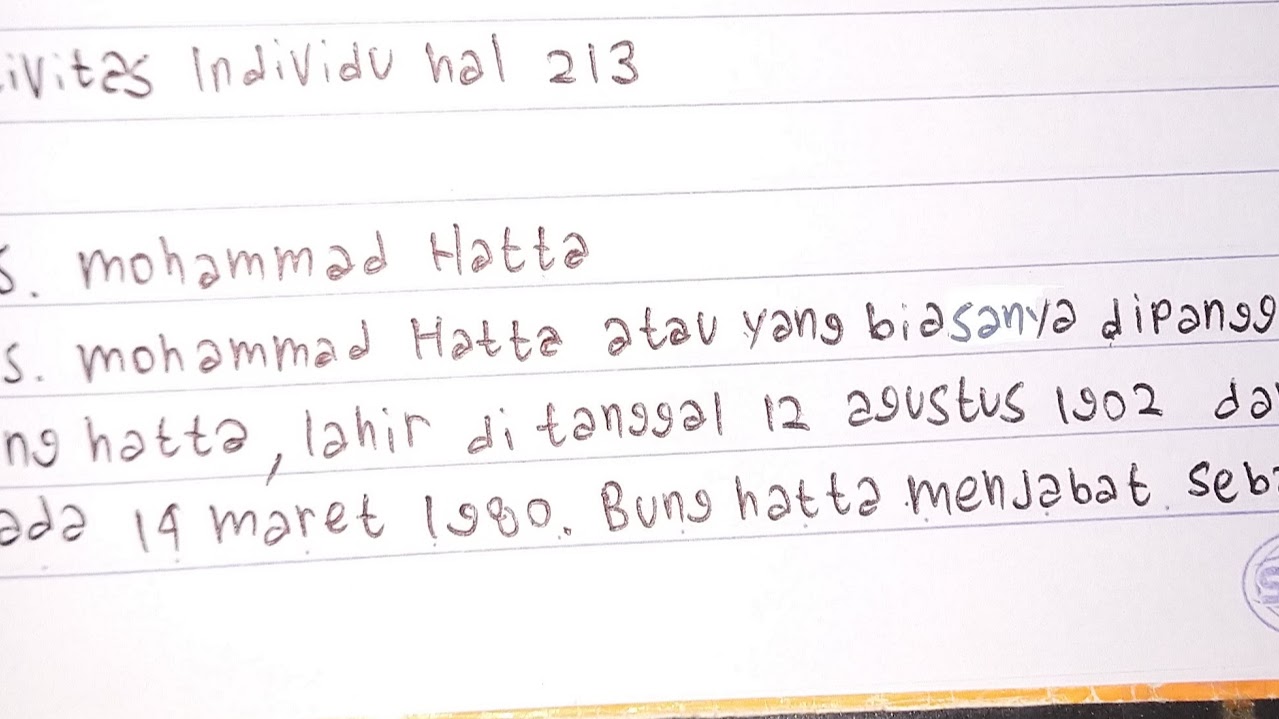 ivitas Individu hal 213
s. mohammad Hatta
s. mohammad Hatta atau yang biasanya dipangg
ng hatta, lahir di tanggal 12 agustus 1902 da
ada 14 maret 1980. Bung hatta menjabat seba